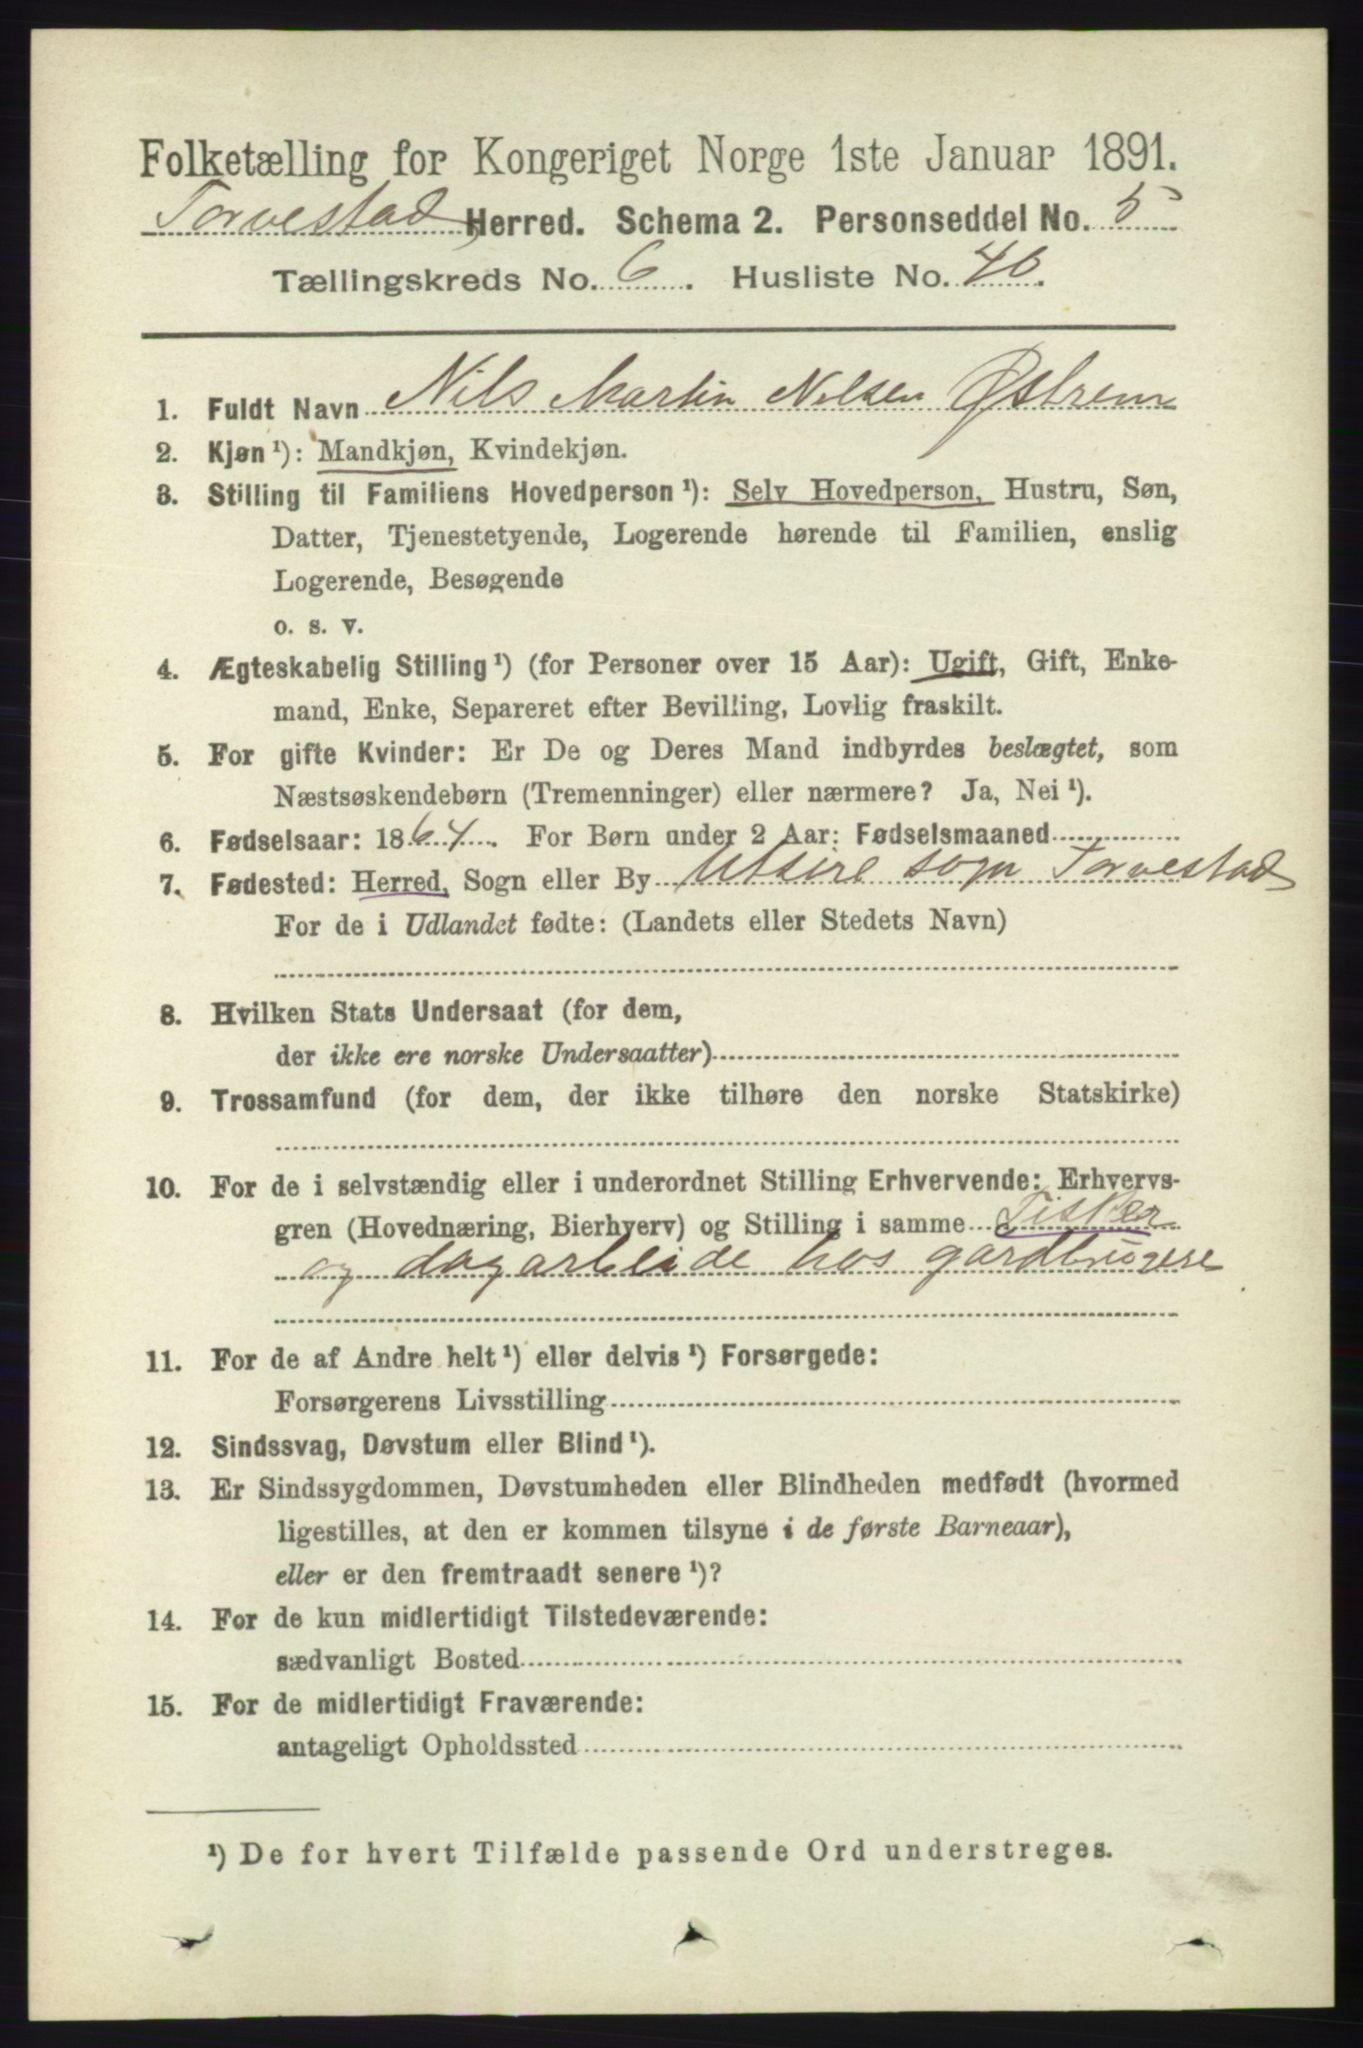 Folketælling for Kongeriget Norge 1ste Januar 1891.
Torvestad Herred. Schema 2. Personseddel No. 5
Tællingskreds No. 6. Husliste No. 40.
1. Fuldt Navn Nils Martin Nilsen Østrem
2. Kjøn¹): Mandkjøn, Kvindekjøn.
3. Stilling til Familiens Hovedperson¹): Selv Hovedperson, Hustru, Søn,
Datter, Tjenestetyende, Logerende hørende til Familien, enslig
Logerende, Besøgende
o. s. v.
4. Ægteskabelig Stilling¹) (for Personer over 15 Aar): Ugift, Gift, Enke-
mand, Enke, Separeret efter Bevilling, Lovlig fraskilt.
5. For gifte Kvinder: Er De og Deres Mand indbyrdes beslægtet, som
Næstsøskendebørn (Tremenninger) eller nærmere? Ja, Nei¹).
6. Fødselsaar: 1864. For Børn under 2 Aar: Fødselsmaaned
7. Fødested: Herred, Sogn eller By Utsire sogn Torvestad
For de i Udlandet fødte: (Landets eller Stedets Navn)
8. Hvilken Stats Undersaat (for dem,
der ikke ere norske Undersaatter)
9. Trossamfund (for dem, der ikke tilhøre den norske Statskirke)
10. For de i selvstændig eller i underordnet Stilling Erhvervende: Erhvervs-
gren (Hovednæring, Bierhverv) og Stilling i samme Fisker
og dagarbeide hos gardbrugere
11. For de af Andre helt¹) eller delvis¹) Forsørgede:
Forsørgerens Livsstilling
12. Sindssvag, Døvstum eller Blind¹).
13. Er Sindssygdommen, Døvstumheden eller Blindheden medfødt (hvormed
ligestilles, at den er kommen tilsyne i de første Barneaar),
eller er den fremtraadt senere¹)?
14. For de kun midlertidigt Tilstedeværende:
sædvanligt Bosted
15. For de midlertidigt Fraværende:
antageligt Opholdssted
¹) De for hvert Tilfælde passende Ord understreges.